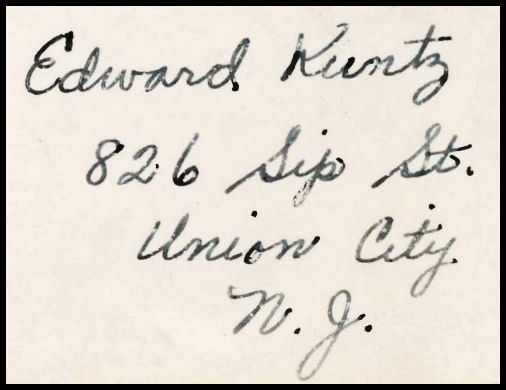 Edward Kuntz
826 Sip St.
Union City
N. J.